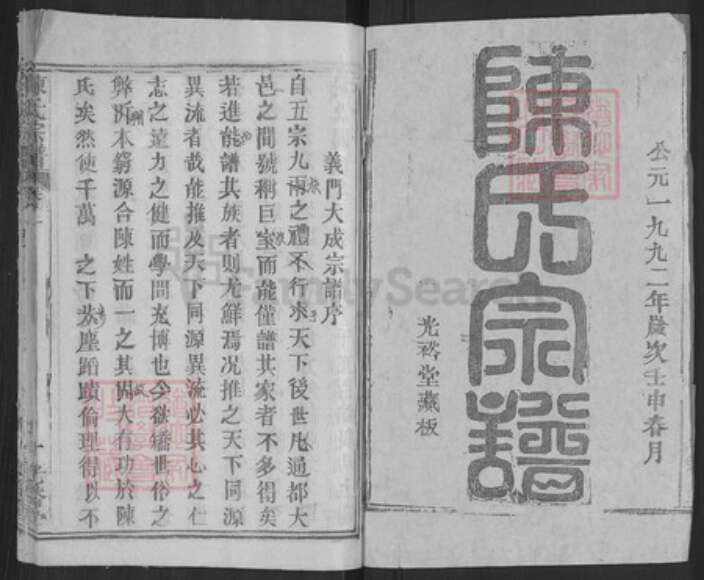 公元一九九二年歲次壬申春月
陳氏宗譜
光裕堂藏板
義門大成宗譜序
自五宗九兩之禮不行求天下後世凡通都大
邑之間號稱巨室而能僅譜其家者不多得矣
若進能譜其族者則尤鮮焉况推之天下同源
異流者哉能推及天下同源異流必其心之仁
志之遠力之健而學問充博也今欲矯世俗之
弊泝本窮源合陳姓而一之其關大有功於陳
氏矣然使千萬 之下 塵蹈 倫理得以不
陳氏宗譜
FamilySearch